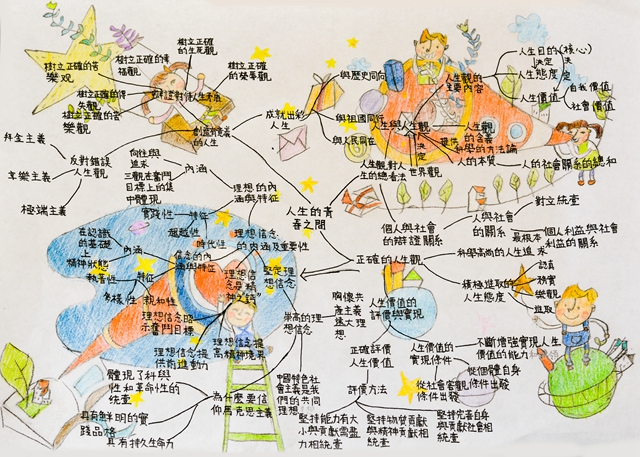 樹立正確的生死觀
樹立正確的榮辱觀
樹立正確的幸福觀
樹立正確的苦樂观
樹立正確的得失觀
創造有意義的人生
成就出彩人生
與歷史同向
與祖國同行
與人民同在
反對錯誤人生觀
拜金主義
享樂主義
極端主義
人生的青春之問
人生觀的主要內容
人生目的(核心)
決定
決定
人生態度
人生價值
自我價值
社會價值
人生與人生觀
人生觀
決定
科學的方法論
人的本質
人的社會關系的總和
人生觀對人生的總看法
世界觀
個人與社會的辯證關系
人與社會的關系
對立統查
最根本
個人利益與社會利益的關系
正確的人生觀
科學高尚的人生追求
積極進取的人生態度
認真
務實
樂觀
進取
人生價值的評價與實現
正確評評人生價值
人生價值的實現條件
不斷增強實現人生價值的能力
從個體自身條件出發
從社會客觀條件出發
評價方法
堅持能力有大小與貢獻需盡力相統查
堅持物質貢獻與精神貢獻相統查
堅持完善自身與貢獻社會相統查
內涵
理想的內涵與特征
特征
超越性
時代性
理想信念的內涵及重要性
信念的內涵與特征
內涵
在認識的基礎上
精神狀態
特征
執著性
多樣性
親和性
理想信念是精神之"鈣"
理想信念昭示奮鬥目標
理想信念提供前進動力
理想信念提高精神境界
堅定理想信念
崇高的理想信念
胸懷共產主義遠大理想
中國特色社會主義是我們的共同理想
為什麼要信仰馬克思主義
體現了科學性和革命性的統查
具有鮮明的實踐品格
具有持久生命力